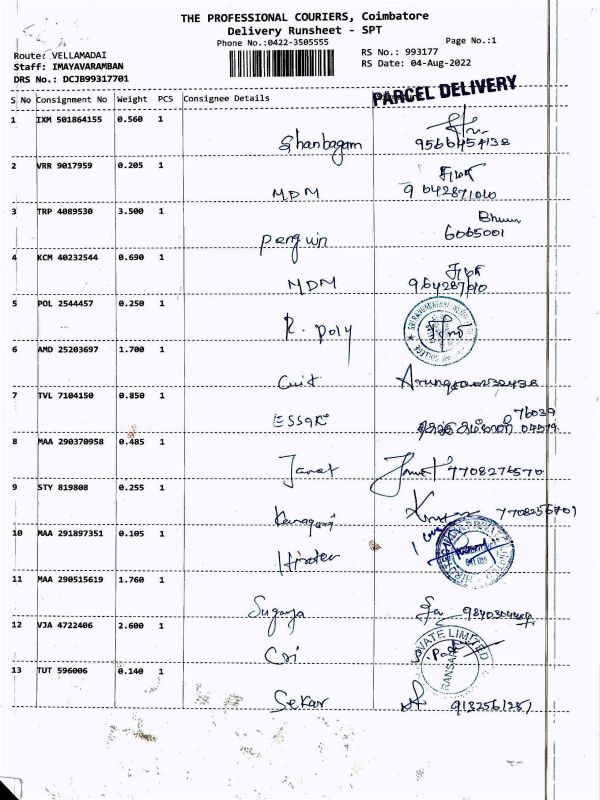 THE PROFESSIONAL COURIERS, Coimbatore
Delivery Runsheet - SPT
Phone No.:0422-3505555
Page No.:1
Route: VELLAMADAI
RS No.: 993177
Staff: IMAYAVARAMBAN
RS Date: 04-Aug-2022
DRS No.: DCJB99317701
PARCEL DELIVERY
S No Consignment No Weight PCS Consignee Details
1 IXM 501864155 0.560 1
Shanbagam 9566454138
2 VRR 9017959 0.205 1
MDM 9042871010
3 TRP 4089530 3.500 1
Penguin 6065001
4 KCM 40232544 0.690 1
MDM
5 POL 2544457 0.250 1
R. poly
6 AMD 25203697 1.700 1
Cuit
7 TVL 7104150 0.850 1
76039
ESSAR 04579
8 MAA 290370958 0.485 1
Janat 7708276570
9 STY 819808 0.255 1
7708256701
10 MAA 291897351 0.105 1
11 MAA 290515619 1.760 1
Suganya
12 VJA 4722406 2.600 1
VATE LIMITED
Cri
13 TUT 596006 0.140 1
Sekar 9132561251